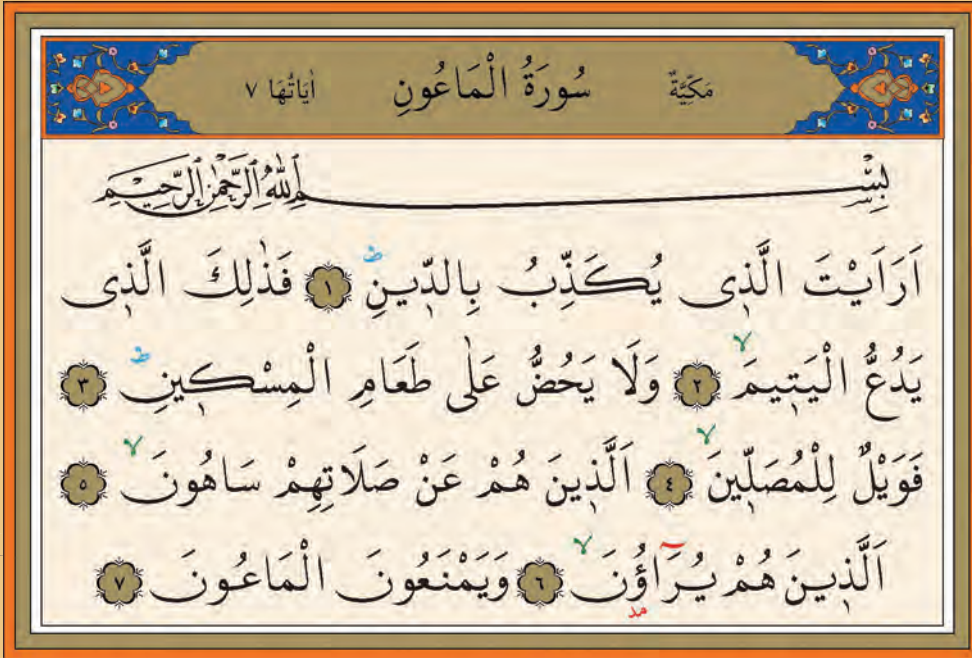 مَكِّيَّةٌ سُورَةُ الْمَاعُونِ اٰيَاتُهَا ٧
بِسْمِ اللّٰهِ الرَّحْمٰنِ الرَّحِيمِ
اَرَاَيْتَ الَّذ۪ى يُكَذِّبُ بِالدّ۪ينِۜ ﴿١﴾ فَذٰلِكَ الَّذ۪ى
يَدُعُّ الْيَت۪يمَۙ ﴿٢﴾ وَلَا يَحُضُّ عَلٰى طَعَامِ الْمِسْك۪ينِۜ ﴿٣﴾
فَوَيْلٌ لِلْمُصَلّ۪ينَۙ ﴿٤﴾ اَلَّذ۪ينَ هُمْ عَنْ صَلَاتِهِمْ سَاهُونَۙ ﴿٥﴾
اَلَّذ۪ينَ هُمْ يُرَٓاؤُ۫نَۙ ﴿٦﴾ وَيَمْنَعُونَ الْمَاعُونَ ﴿٧﴾
مد